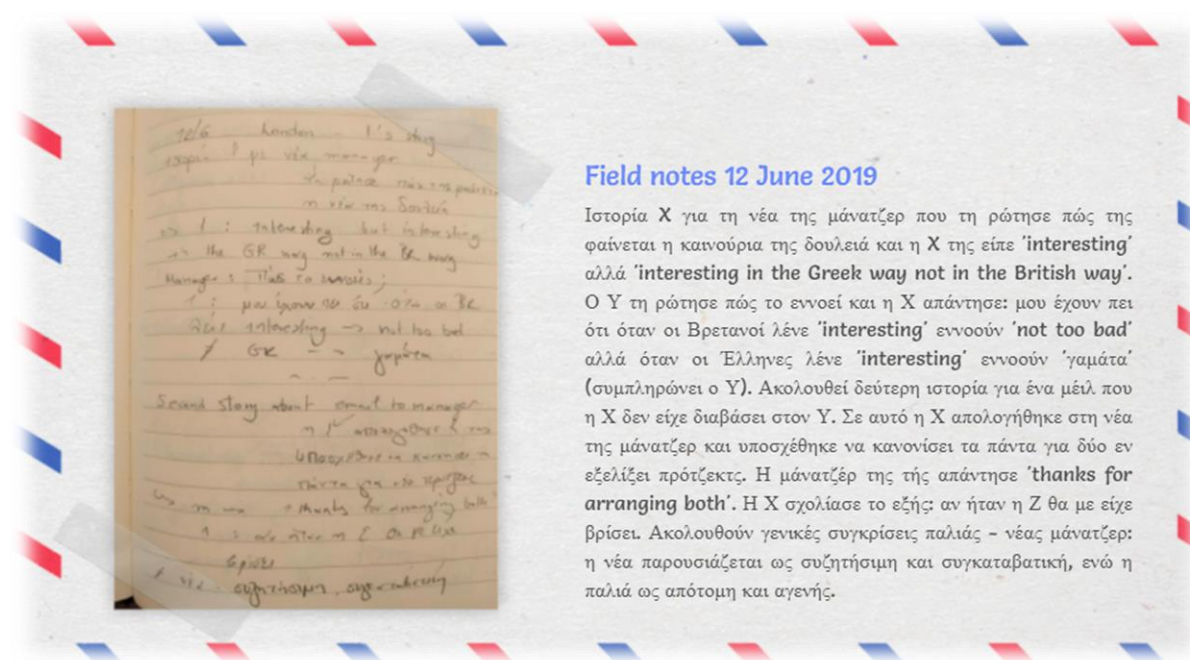 12/6 London - 1's story
με νέα manager
τη ρώτησε πώς της φαίνεται
η νέα της δουλειά
: Interesting but interesting
in the GR way not in the Br way
Manager: Πώς το εννοείς;
: μου έχουν πει ότι όταν οι Br
λένε interesting → not too bad
GR - - γαμάτα
Second story about email to manager
η απολογήθηκε
υποσχέθηκε να κανονίσει τα
πάντα για δύο
thanks for arranging both
: αν ήταν η Ζ θα με είχε
βρίσει
νέα - συζητήσιμη, συγκαταβατική
Field notes 12 June 2019
Ιστορία Χ για τη νέα της μάνατζερ που τη ρώτησε πώς της
φαίνεται η καινούρια της δουλειά και η Χ της είπε 'interesting'
αλλά 'interesting in the Greek way not in the British way'.
Ο Υ τη ρώτησε πώς το εννοεί και η Χ απάντησε: μου έχουν πει
ότι όταν οι Βρετανοί λένε 'interesting' εννοούν 'not too bad'
αλλά όταν οι Έλληνες λένε 'interesting' εννοούν 'γαμάτα'
(συμπληρώνει ο Υ). Ακολουθεί δεύτερη ιστορία για ένα μέιλ που
η Χ δεν είχε διαβάσει στον Υ. Σε αυτό η Χ απολογήθηκε στη νέα
της μάνατζερ και υποσχέθηκε να κανονίσει τα πάντα για δύο εν
εξελίξει πρότζεκτς. Η μάνατζέρ της τής απάντησε 'thanks for
arranging both'. Η Χ σχολίασε το εξής: αν ήταν η Ζ θα με είχε
βρίσει. Ακολουθούν γενικές συγκρίσεις παλιάς – νέας μάνατζερ:
η νέα παρουσιάζεται ως συζητήσιμη και συγκαταβατική, ενώ η
παλιά ως απότομη και αγενής.